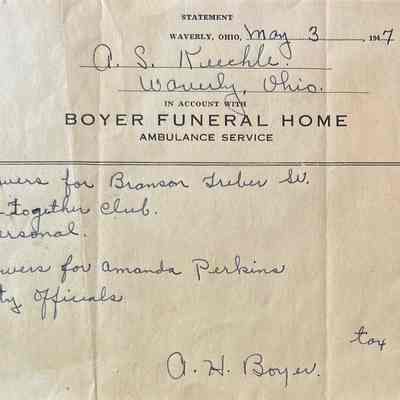 STATEMENT
WAVERLY, OHIO, May 3, 1947
A. S. Keechle.
Waverly, Ohio.
IN ACCOUNT WITH
BOYER FUNERAL HOME
AMBULANCE SERVICE
wers for Branson Treber Sr.
-Together Club.
ersonal.
owers for Amanda Perkins
ty Officials
tax
A. H. Boyer.